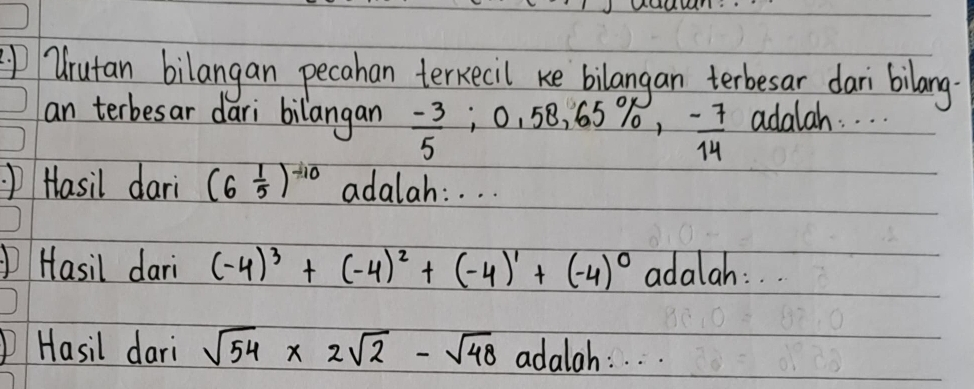 2.) Urutan bilangan pecahan terkecil ke bilangan terbesar dari bilang-
an terbesar dari bilangan -3/5 ; 0,58, 65%, -7/14 adalah....
Hasil dari (6 1/5)^-10 adalah:...
Hasil dari (-4)³ + (-4)² + (-4)¹ + (-4)⁰ adalah:...
Hasil dari √54 x 2√2 - √48 adalah:....